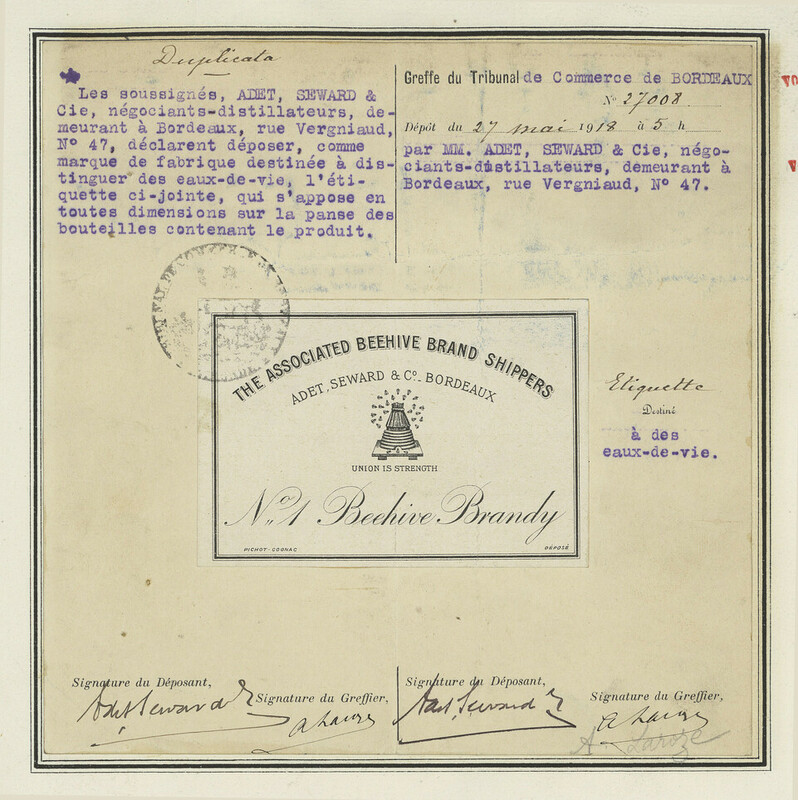 Duplicata
Les soussignés, ADET, SEWARD &
Cie, négociants-distillateurs, de-
meurant à Bordeaux, rue Vergniaud,
N° 47, déclarent déposer, comme
marque de fabrique destinée à dis-
tinguer des eaux-de-vie, l'éti-
quette ci-jointe, qui s'appose en
toutes dimensions sur la panse des
bouteilles contenant le produit.
Greffe du Tribunal de Commerce de BORDEAUX
N° 27008.
Dépôt du 27 mai 1918 à 5 h
par MM. ADET, SEWARD & Cie, négo-
ciants-distillateurs, demeurant à
Bordeaux, rue Vergniaud, N° 47.
THE ASSOCIATED BEEHIVE BRAND SHIPPERS
ADET, SEWARD & Co. BORDEAUX
UNION IS STRENGTH
No 1 Beehive Brandy
PICHOT-COGNAC
DÉPOSÉ
Etiquette
Destiné
à des
eaux-de-vie.
Signature du Déposant,
Adet Seward
Signature du Greffier,
Signature du Déposant,
Adet Seward
Signature du Greffier,
A. Laroze